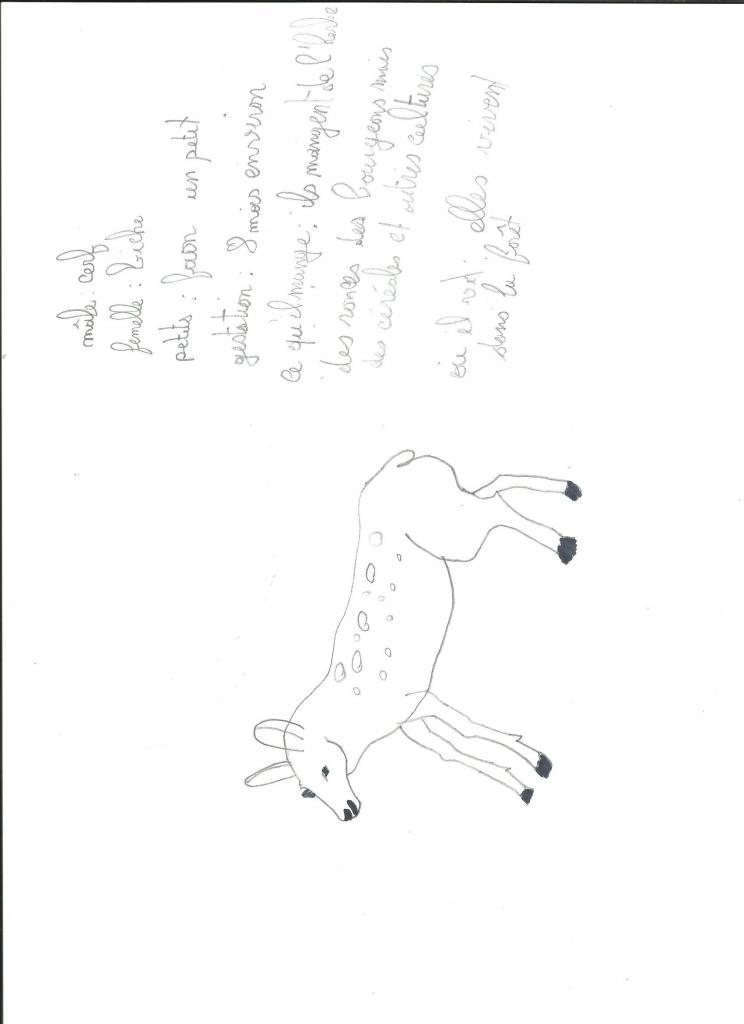 mâle : cerf
femelle : biche
petits : faon un petit
gestation : 8 mois environ
ce qu'il mange : ils mangent de l'herbe
des ronces des bourgeons mais
des céréales et autres cultures
où il vit : elles vivent
dans la forêt